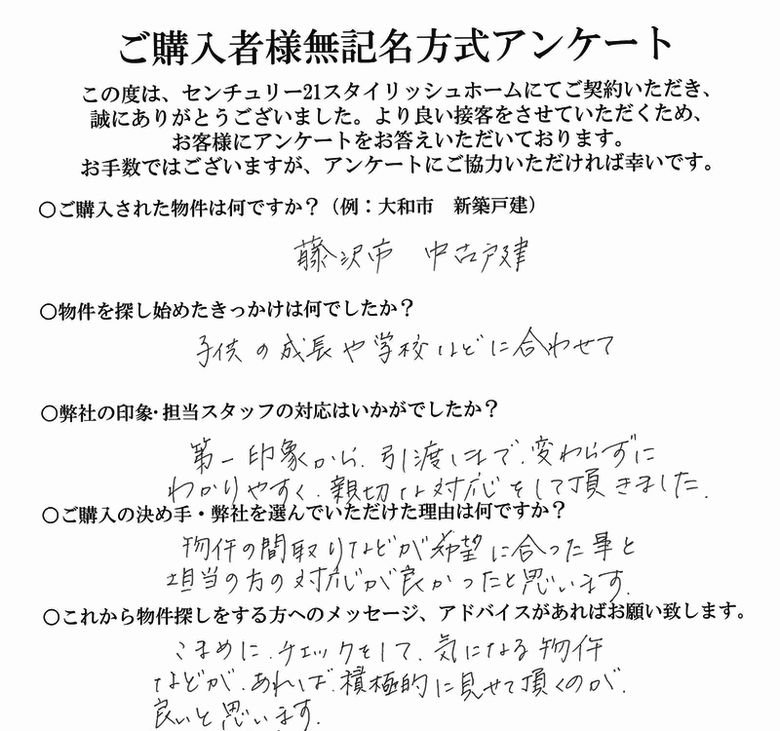 ご購入者様無記名方式アンケート
この度は、センチュリー21スタイリッシュホームにてご契約いただき、
誠にありがとうございました。より良い接客をさせていただくため、
お客様にアンケートをお答えいただいております。
お手数ではございますが、アンケートにご協力いただければ幸いです。
〇ご購入された物件は何ですか？（例：大和市　新築戸建）
藤沢市　中古戸建
〇物件を探し始めたきっかけは何でしたか？
子供の成長や学校などに合わせて
〇弊社の印象・担当スタッフの対応はいかがでしたか？
第一印象から、引渡しまで、変わらずに
わかりやすく、親切な対応をして頂きました。
〇ご購入の決め手・弊社を選んでいただけた理由は何ですか？
物件の間取りなどが希望に合った事と
担当の方の対応が良かったと思います。
〇これから物件探しをする方へのメッセージ、アドバイスがあればお願い致します。
こまめに、チェックをして、気になる物件
などが、あれば、積極的に見せて頂くのが、
良いと思います。